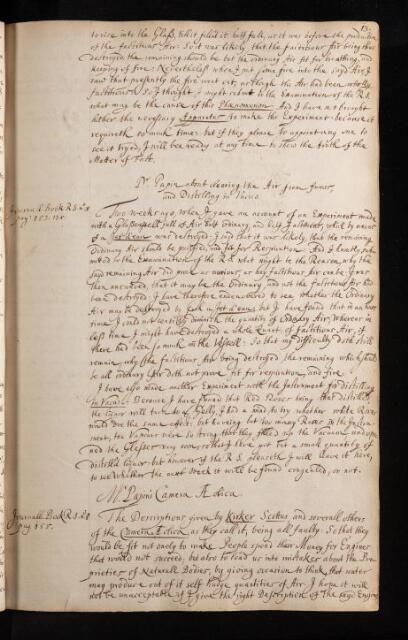 13.
to rise into the Glass, till it filled it half full, as it was before the production
of the factitious Air: So it was likely that the factitious Air being thus
destroyed the remaining should be but the ordinary Air fit for breathing, and
keeping of fire: Nevertheless when I put some fire into the said Air, I
saw that presently the fire went out, as though the Air had been
factitious. So I thought I might submit to the Examination of the R.S.
what may be the cause of this Phenomenon. And I have not brought
hither the necessary Apparatus to make the Experiment because it
requireth so much time: but if they please to appoint any one to
see it tryed, I will be ready at any time to shew the truth of the
Matter of Fact.
Dr. Papin about clearing the Air from fumes,
and Distilling in Vacuo
Journall Book R.S.
pag: 152.
Two weeks ago, when I gave an account of an Experiment made
with a Glass vessell full of Air half Ordinary, and half factitious, which by means
of a was destroyed: I said that it was likely that the remaining
Ordinary Air should be purifyed, and fit for Respiration. And I
to the Examination of the R.S. what might be the Reason why the
said remaining Air did prove as noxious, as any factitious Air can be: It was
then answered, that it may be the Ordinary, and not the factitious Air had
been destroyed: I have therefore endeavoured to see whether the Ordinary
Air may be destroyed by such but I have found that in an hour
time I could not sensibly diminish the quantity of Ordinary Air, whereas in
less time I might have destroyed a whole Quart of factitious Air, if
there had been so much in the Vessell: So that my difficulty doth still
remain, why the factitious Air being destroyed the remaining which should
be all ordinary Air doth not prove fit for respiration, and fire.
I have also made another Experiment with the Instrument for distilling
in Vacuo: Because I have found that Red Roses being thus distilled,
the liquor will turn to a Gelly, I had a mind to try whether white Roses
would doe the same effect: but having put too many Roses in the Instru-
ment, the Vapours were so strong that they filled up the Vacuum and
the Glasses so that I have got but a small quantity of
distilled liquor: but however if the R.S. pleaseth, I will leave it here,
to see whether the next week it will be found congealed, or not.
Mr. Papin's Camera Aeolica.
Journall Book R.S.
pag: 155.
The Descriptions given by Kirker Scottus and severall others
of the Camera Aeolica, as they call it, being all faulty: So that they
would be fit not onely to make People spend their Money for Engines
that would not succeed, but also to lead us into mistakes about the Pro-
prieties of Naturall Bodies, by giving occasion to think that water
may produce out of it self huge quantities of Air, I hope it will
not be unacceptable if I give the right Description of the said Engine